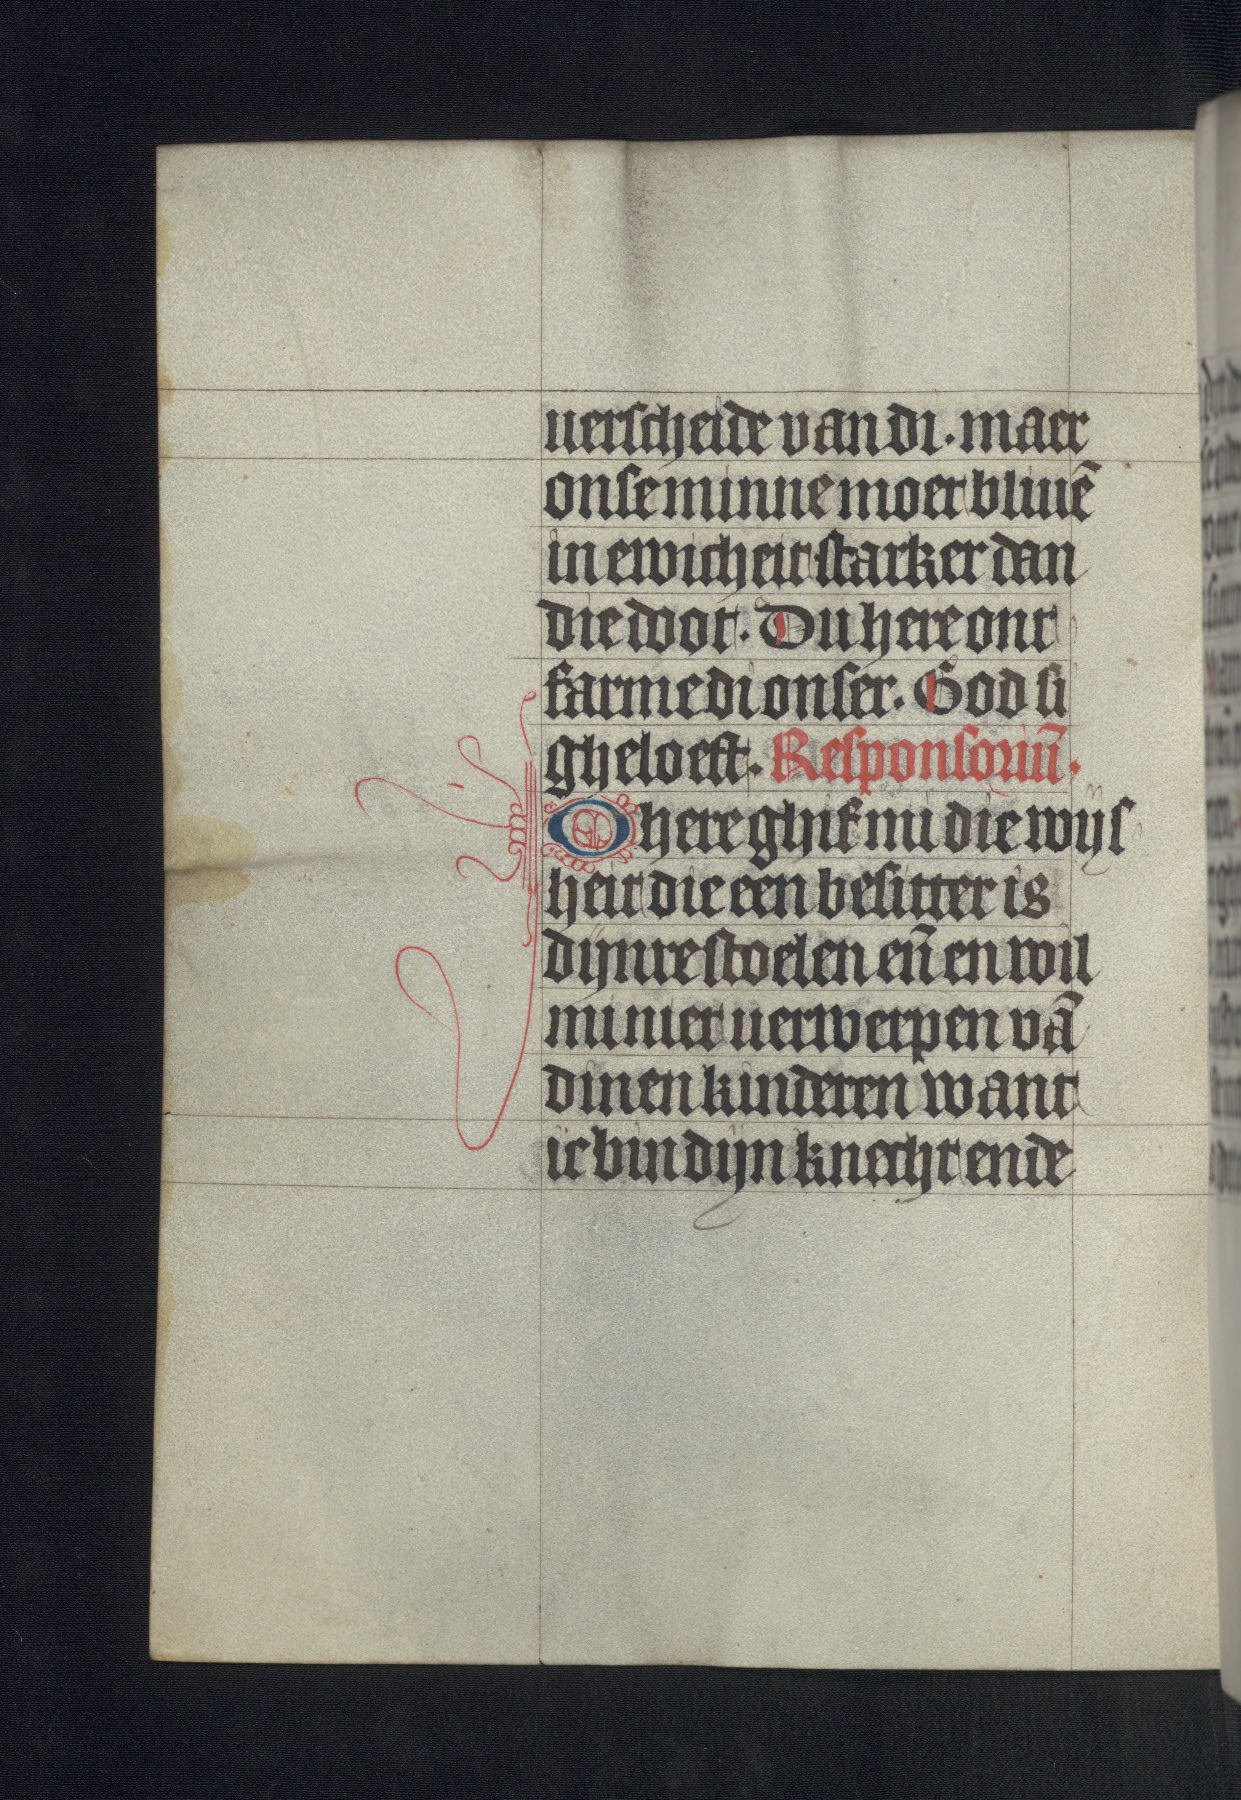 uerscheide van di. maer
onse minne moet bliuē
in ewicheit starker dan
die doot. Du here ont
farme di onser. God si
gheloeft. Responsoriū.
O here ghif mi die wijs
heit die een besitter is
dijnre stoelen eñ en wil
mi niet uerwerpen vā
dinen kinderen want
ic bin dijn knecht ende